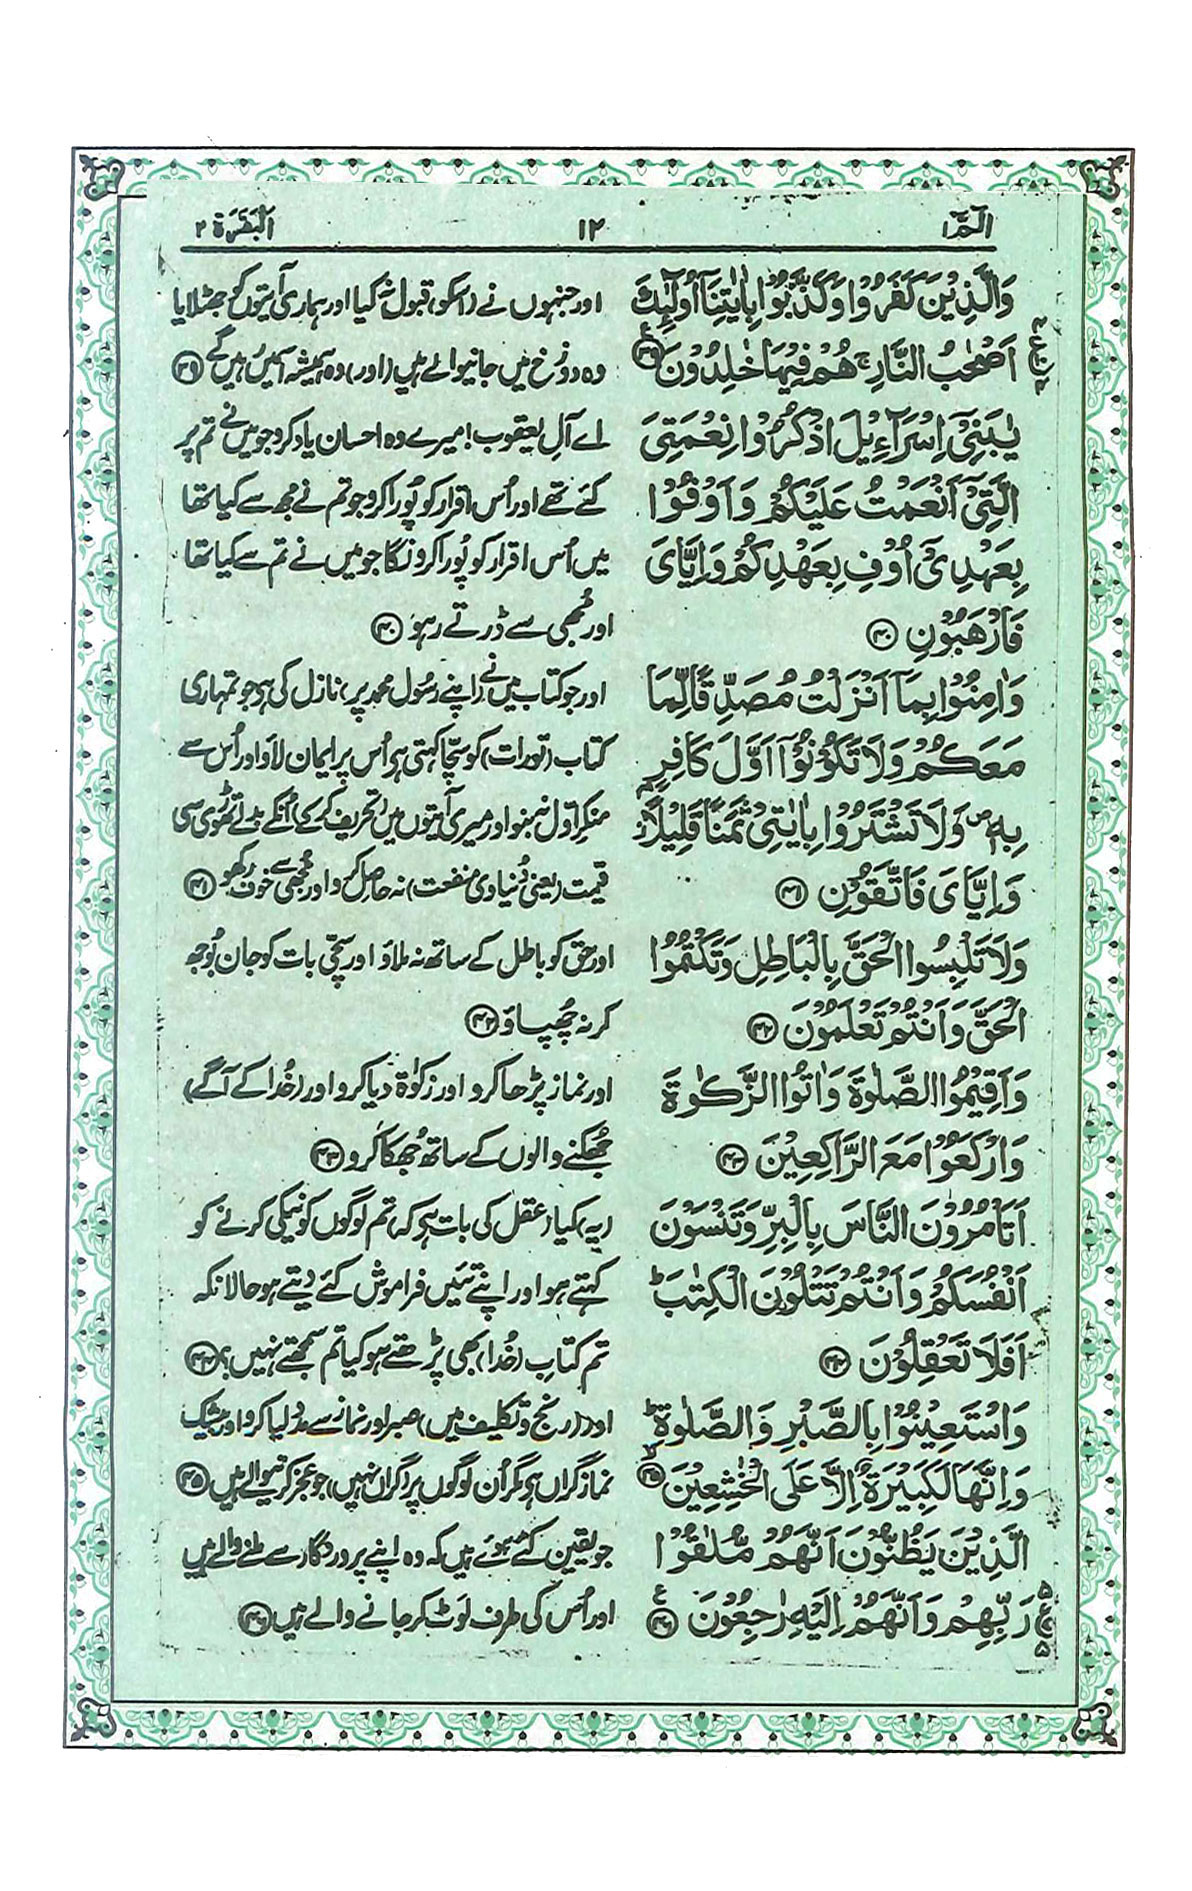 الٓمّٓ ۱
۱۲
البقرة ۲
وَالَّذِیْنَ كَفَرُوْا وَكَذَّبُوْا بِاٰیٰتِنَاۤ اُولٰٓئِكَ
اَصْحٰبُ النَّارِ ۚ هُمْ فِیْهَا خٰلِدُوْنَ ﴿۳۹﴾ ع
یٰبَنِیْۤ اِسْرَآءِیْلَ اذْكُرُوْا نِعْمَتِیَ
الَّتِیْۤ اَنْعَمْتُ عَلَیْكُمْ وَاَوْفُوْا
بِعَهْدِیْۤ اُوْفِ بِعَهْدِكُمْ وَاِیَّایَ
فَارْهَبُوْنِ ﴿۴۰﴾
وَاٰمِنُوْا بِمَاۤ اَنْزَلْتُ مُصَدِّقًا لِّمَا
مَعَكُمْ وَلَا تَكُوْنُوْۤا اَوَّلَ كَافِرٍۭ
بِهٖ ۪ وَلَا تَشْتَرُوْا بِاٰیٰتِیْ ثَمَنًا قَلِیْلًا ؗ
وَاِیَّایَ فَاتَّقُوْنِ ﴿۴۱﴾
وَلَا تَلْبِسُوا الْحَقَّ بِالْبَاطِلِ وَتَكْتُمُوا
الْحَقَّ وَاَنْتُمْ تَعْلَمُوْنَ ﴿۴۲﴾
وَاَقِیْمُوا الصَّلٰوةَ وَاٰتُوا الزَّكٰوةَ
وَارْكَعُوْا مَعَ الرَّاكِعِیْنَ ﴿۴۳﴾
اَتَاْمُرُوْنَ النَّاسَ بِالْبِرِّ وَتَنْسَوْنَ
اَنْفُسَكُمْ وَاَنْتُمْ تَتْلُوْنَ الْكِتٰبَ ؕ
اَفَلَا تَعْقِلُوْنَ ﴿۴۴﴾
وَاسْتَعِیْنُوْا بِالصَّبْرِ وَالصَّلٰوةِ ؕ
وَاِنَّهَا لَكَبِیْرَةٌ اِلَّا عَلَی الْخٰشِعِیْنَ ﴿۴۵﴾ ۙ
الَّذِیْنَ یَظُنُّوْنَ اَنَّهُمْ مُّلٰقُوْا
رَبِّهِمْ وَاَنَّهُمْ اِلَیْهِ رٰجِعُوْنَ ﴿۴۶﴾ ع
اور جنہوں نے (اسکو) قبول نہ کیا اور ہماری آیتوں کو جھٹلایا
وہ دوزخ میں جانیوالے ہیں (اور) وہ ہمیشہ اسمیں رہیں گے ﴿۳۹﴾
اے آلِ یعقوب! میرے وہ احسان یاد کرو جو میں نے تم پر
کئے تھے اور اُس اقرار کو پُورا کرو جو تم نے مجھ سے کیا تھا
میں اُس اقرار کو پُورا کرونگا جو میں نے تم سے کیا تھا
اور مُجھی سے ڈرتے رہو ﴿۴۰﴾
اور جو کتاب میں نے (اپنے رسُول محمد پر) نازل کی ہے جو تمہاری
کتاب (تورات) کو سچّا کہتی ہے اُس پر ایمان لاؤ اور اُس سے
منکرِ اوّل نہ بنو اور میری آیتوں میں (تحریف کر کے) اُنکے بدلے تھوڑی سی
قیمت (یعنی دُنیاوی منفعت) نہ حاصل کرو اور مُجھی سے خوف رکھو ﴿۴۱﴾
اور حق کو باطل کے ساتھ نہ ملاؤ اور سچّی بات کو جان بُوجھ
کر نہ چُھپاؤ ﴿۴۲﴾
اور نماز پڑھا کرو اور زکوٰۃ دیا کرو اور (خُدا کے آگے)
جُھکنے والوں کے ساتھ جُھکا کرو ﴿۴۳﴾
(یہ) کیا (عقل کی بات ہے کہ) تم لوگوں کو نیکی کرنے کو
کہتے ہو اور اپنے تئیں فراموش کئے دیتے ہو حالانکہ
تم کتابِ (خُدا) بھی پڑھتے ہو کیا تم سمجھتے نہیں؟ ﴿۴۴﴾
اور (رنج و تکلیف میں) صبر اور نماز سے مدد لیا کرو اور بیشک
نماز گراں ہے مگر اُن لوگوں پر (گراں نہیں) جو عجز کرنیوالے ہیں ﴿۴۵﴾
جو یقین کئے ہوئے ہیں کہ وہ اپنے پروردگار سے ملنے والے ہیں
اور اُس کی طرف لوٹ کر جانے والے ہیں ﴿۴۶﴾